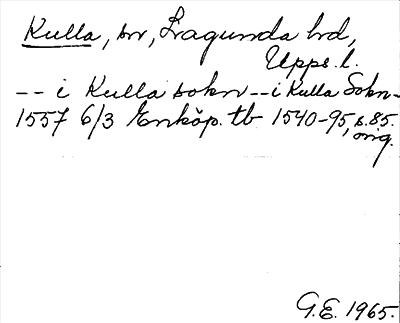 Kulla, sn, Lagunda hd,
Upps. l.
-- i Kulla sokn -- i Kulla Sokn -
1557 6/3 Enköp. tb 1540-95, s. 85.
orig.
G.E. 1965.